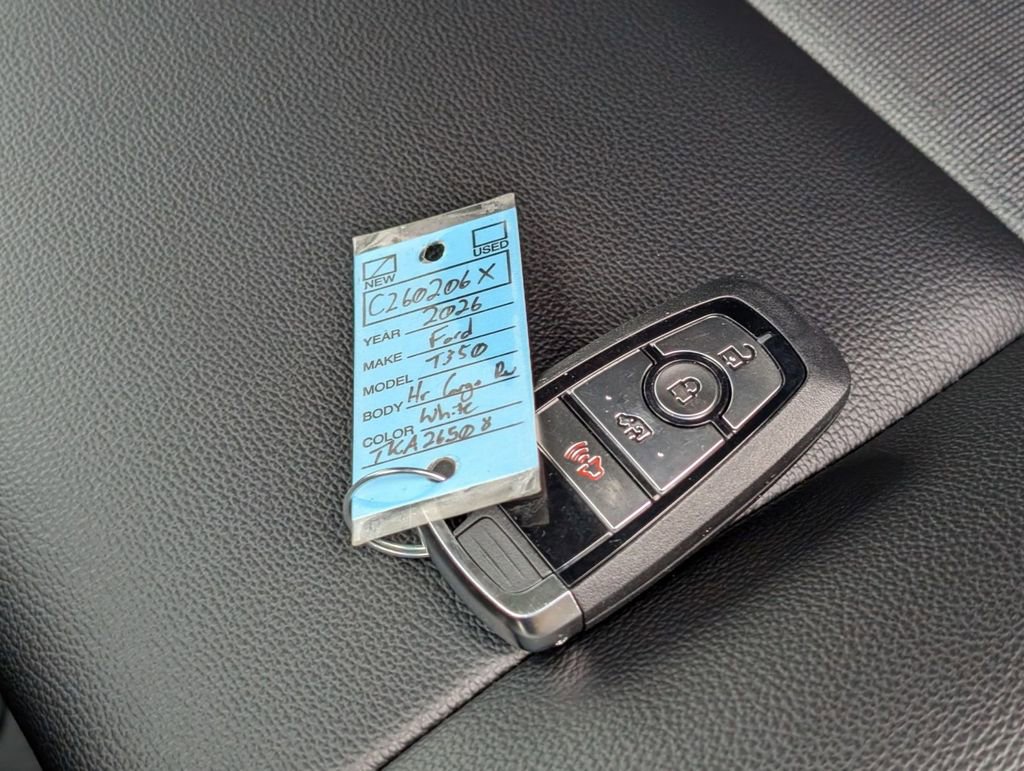 NEW USED
C260206X
YEAR 2026
MAKE Ford
MODEL T350
BODY Hr Cargo
COLOR White
TKA26508